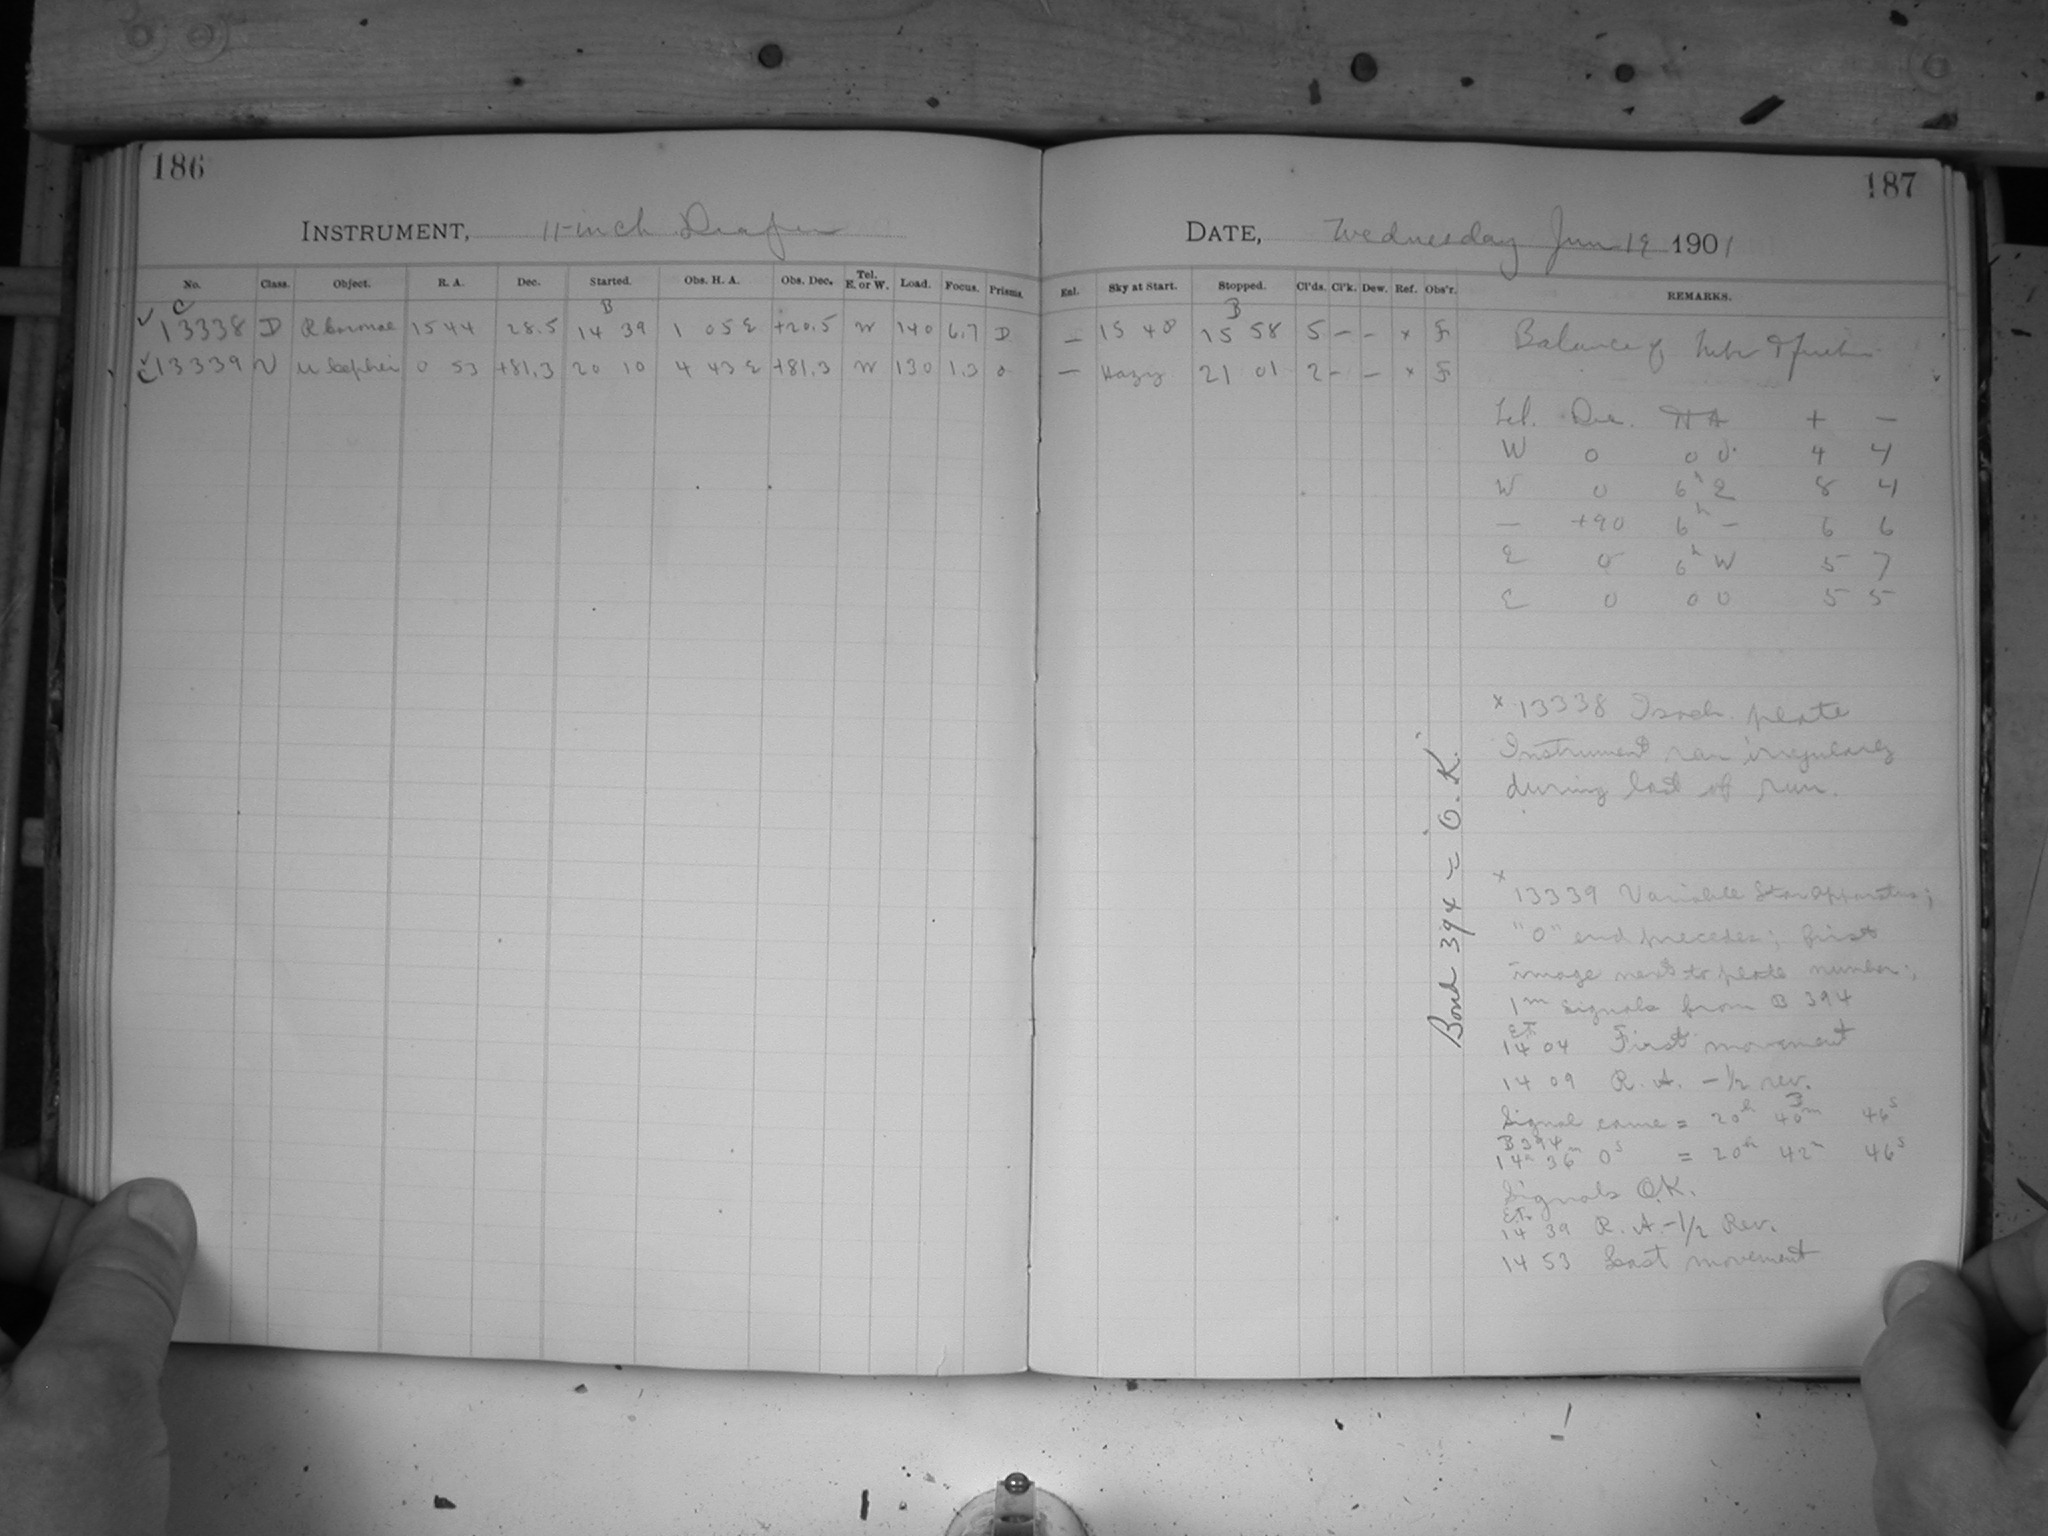 186
INSTRUMENT, 11-inch Draper
No. Class. Object. R. A. Dec. Started. Obs. H. A. Obs. Dec. Tel. E. or W. Load. Focus. Prisms.
C B
✓ 13338 D R Coronae 15 44 28.5 14 39 1 05 E +20.5 W 140 6.7 D
✓ C 13339 V U Cephei 0 53 +81.3 20 10 4 43 E +81.3 W 130 1.3 0
187
DATE, Wednesday Jun 19 1901
Enl. Sky at Start. Stopped. Cl'ds. Cl'k. Dew. Ref. Obs'r. REMARKS.
B
— 15 48 15 58 5 — — x
— Hazy 21 01 2 — — x
Balance of
Tel. Dec. HA + −
W 0 0 0 4 4
W 0 6h E 8 4
— +90 6h — 6 6
E 0 6h W 5 7
E 0 0 0 5 5
x 13338 Isoch. plate
Instrument ran irregularly
during last of run.
Bond 394 = O.K.
x
13339 Variable Star apparatus;
"0" end precedes; first
image next to plate number;
1m signals from B 394
E.T.
14 04 First movement
14 09 R. A. −1/2 rev.
B
Signal came = 20h 40m 46s
B 394
14h 36m 0s = 20h 42m 46s
Signals O.K.
E.T.
14 39 R. A. −1/2 Rev.
14 53 Last movement